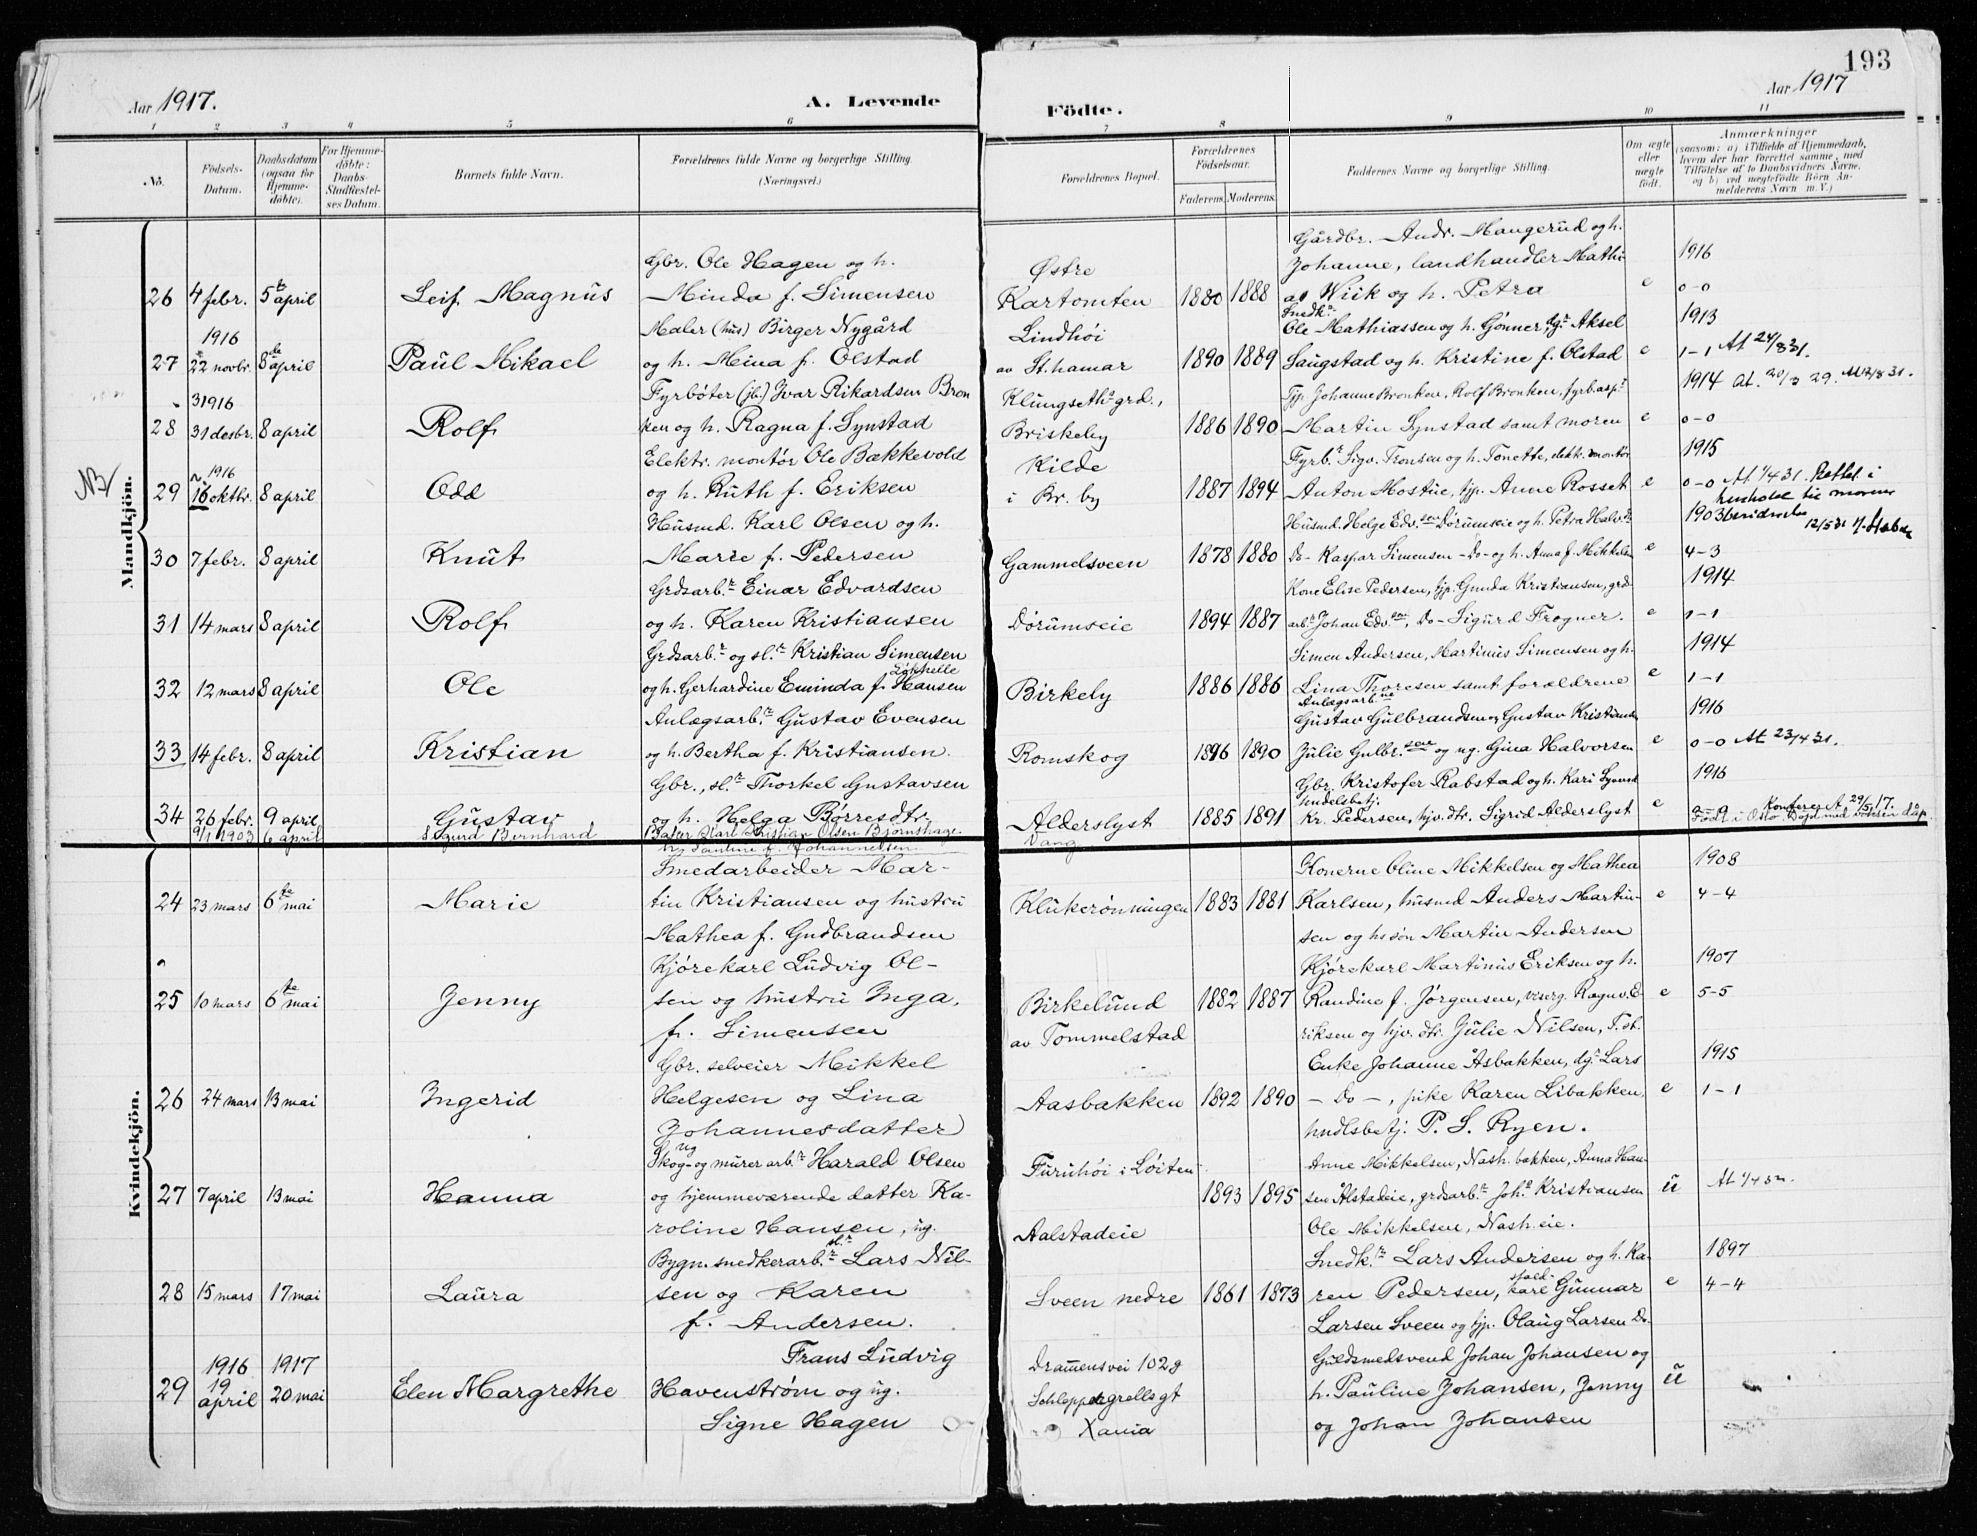 193
Aar 1917.
A. Levende
Fødte.
Aar 1917
1 2 3 4 5 6 7 8 9 10 11
No.
Födsels-Datum.
Daabsdatum (ogsaa for Hjemme-döbte).
For Hjemme-döbte: Daabs-Stadfæstel-ses Datum.
Barnets fulde Navn.
Forældrenes fulde Navne og borgerlige Stilling. (Næringsvei.)
Forældrenes Bopæl.
Forældrenes Födselsaar.
Faderens. Moderens.
Faddernes Navne og borgerlige Stilling.
Om ægte eller uægte födt.
Anmærkninger (saasom: a) i Tilfælde af Hjemmedaab, hvem der har forrettet samme, med Tilföielse af to Daabsvidners Navne, og b) ved uægtefödte Börn An-melderens Navn m. V.)
Mandkjön.
26 4 febr. 5te april Leif Magnus
Gbr. Ole Hagen og h.
Minda f. Simensen
Østre
Kartomten 1880 1888
Gårdbr. Andr. Mangerud og h.
Johanne, landhandler Mathi-
as Wiik og h. Petra
e 1916
0-0
27 1916 22 novbr. 8de april Paul Mikael
Maler (hus) Birger Nygård
og h. Mina f. Olstad
Lindhöi
av St.hamar 1890 1889
Snedkr
Ole Mathiassen og h. Gønner, dgr Aksel
Saugstad og h. Kristine f. Olstad
e 1913
1-1 At 24/8 31.
28 1916 31 desbr. 8 april Rolf
Fyrbøter (jb.) Ivar Rikardsen Bron
ken og h. Ragna f. Synstad
Klungseth grd.,
Briskeby 1886 1890
Tjp. Johanne Bronken, Rolf Bronken, fyrb.aspt
Martin Synstad samt moren
e 1914 At. 20/3 29. At 21/8 31.
0-0
NB
29 1916 16 oktbr. 8 april Odd
Elektr. montör Ole Bækkevold
og h. Ruth f. Eriksen
Kilde
i Br. by 1887 1894
Fyrb.r Sigv. Tronsen og h. Tonette, elektr. montör
Anton Mostue, tjp. Anne Rosset
e 1915
0-0 At. 1/4 31. Rettet i
30 7 febr. 8 april Knut
Husmd. Karl Olsen og h.
Marie f. Pedersen
Gammelsveen 1878 1880
Husmd. Helge Edv.sen Dørumseie og h. Petra Halv.dr
Do- Kaspar Simensen -Do- og h. Anna f. Mikkelsen
e 1903
4-3
12/5 31
31 14 mars 8 april Rolf
Grdsarb.r Einar Edvardsen
og h. Karen Kristiansen
Dørumseie 1894 1887
Kone Elise Pedersen, tjp. Gunda Kristiansen, grds-
arb.r Johan Edv.sen, Do- Sigurd Frogner.
e 1914
1-1
32 12 mars 8 april Ole
Grdsarb.r og sl.r Kristian Simensen
og h. Gerhardine Eminda f. Hansen
Birkely 1886 1886
Simen Andersen, Martinus Simensen og h.
Lina Thoresen samt forældrene
e 1914
1-1
33 14 febr. 8 april Kristian
Anlægsarb.r Gustav Evensen
og h. Bertha f. Kristiansen.
Romskog 1896 1890
Anlægsarb.ne
Gustav Gulbrandsen og Gustav Kristiansen
Julie Gulbr.sen og ug. Gina Halvorsen
e 1916
0-0 At 23/4 31.
34 26 febr. 9 april Gustav
Gbr., sl.r Thorkel Gustavsen
og h. Helga Børresdtr.
Alderslyst 1885 1891
Gbr. Kristofer Rabstad og h. Kari Synnøve
hndelsbetj.
Kr. Pedersen, hjv. dtr. Sigrid Alderslyst
e 1916
0-0 Konferer A. 29/5 17.
9/1 1903 6 april Sigurd Bernhard
Baker Karl Kristian Olsen Bjørnshage
h. Pauline f. Johannessen
Vang
Født i Oslo. Døpt med voksen dåp
Kvindekjön.
24 23 mars 6te mai Marie
Smedarbeider Mar-
tin Kristiansen og hustru
Mathea f. Gudbrandsen
Klukerønningen 1883 1881
Konerne Oline Mikkelsen og Mathea
Karlsen, husmd Anders Martin-
sen og hs søn Martin Andersen
e 1908
4-4
25 10 mars 6te mai Jenny
Kjørekarl Ludvig Ol-
sen og hustru Inga,
f. Simensen
Birkelund
av Tommelstad 1882 1887
Kjørekarl Martinus Eriksen og h.
Randine f. Jørgensen, viserg. Ragnv. E-
riksen og hjv. dtr. Julie Nilsen, T.st.
e 1907
5-5
26 24 mars 13 mai Ingerid
Gbr. selveier Mikkel
Helgesen og Lina
Johannesdatter
Aasbakken 1892 1890
Enke Johanne Åsbakken, dgr Lars
- Do -, pike Karen Libakken,
hndlsbetj. P. S. Ryen.
e 1915
1-1
27 7 april 13 mai Hanna
ug
Skog- og murerarb.r Harald Olsen
og hjemmeværende datter Ka-
roline Hansen, ug.
Furuhöi i Löiten
Aalstadeie 1893 1895
Anne Mikkelsen, Nash.bakken, Anna Han-
sen Ålstadeie, grdsarb.r Joh.s Kristiansen
Ole Mikkelsen, Nash.eie.
u
28 15 mars 17 mai Laura
Bygn.snedkerarb.r sl.r Lars Nil-
sen og Karen
f. Andersen.
Sveen nedre 1861 1873
Snedk.r Lars Andersen og h. Ka-
ren Pedersen, stald-karl Gunnar
Larsen Sveen og tjp. Olaug Larsen Do-
e 1897
4-4
29 1916 19 april 1917 20 mai Elen Margrethe
Frans Ludvig
Havenstrøm og ug.
Signe Hagen
Dramensvei 102 g
Schleppegrellsgt
Xania
Guldsmedsvend Johan Johansen og
h. Pauline Johansen, Jenny
og Johan Johansen
u